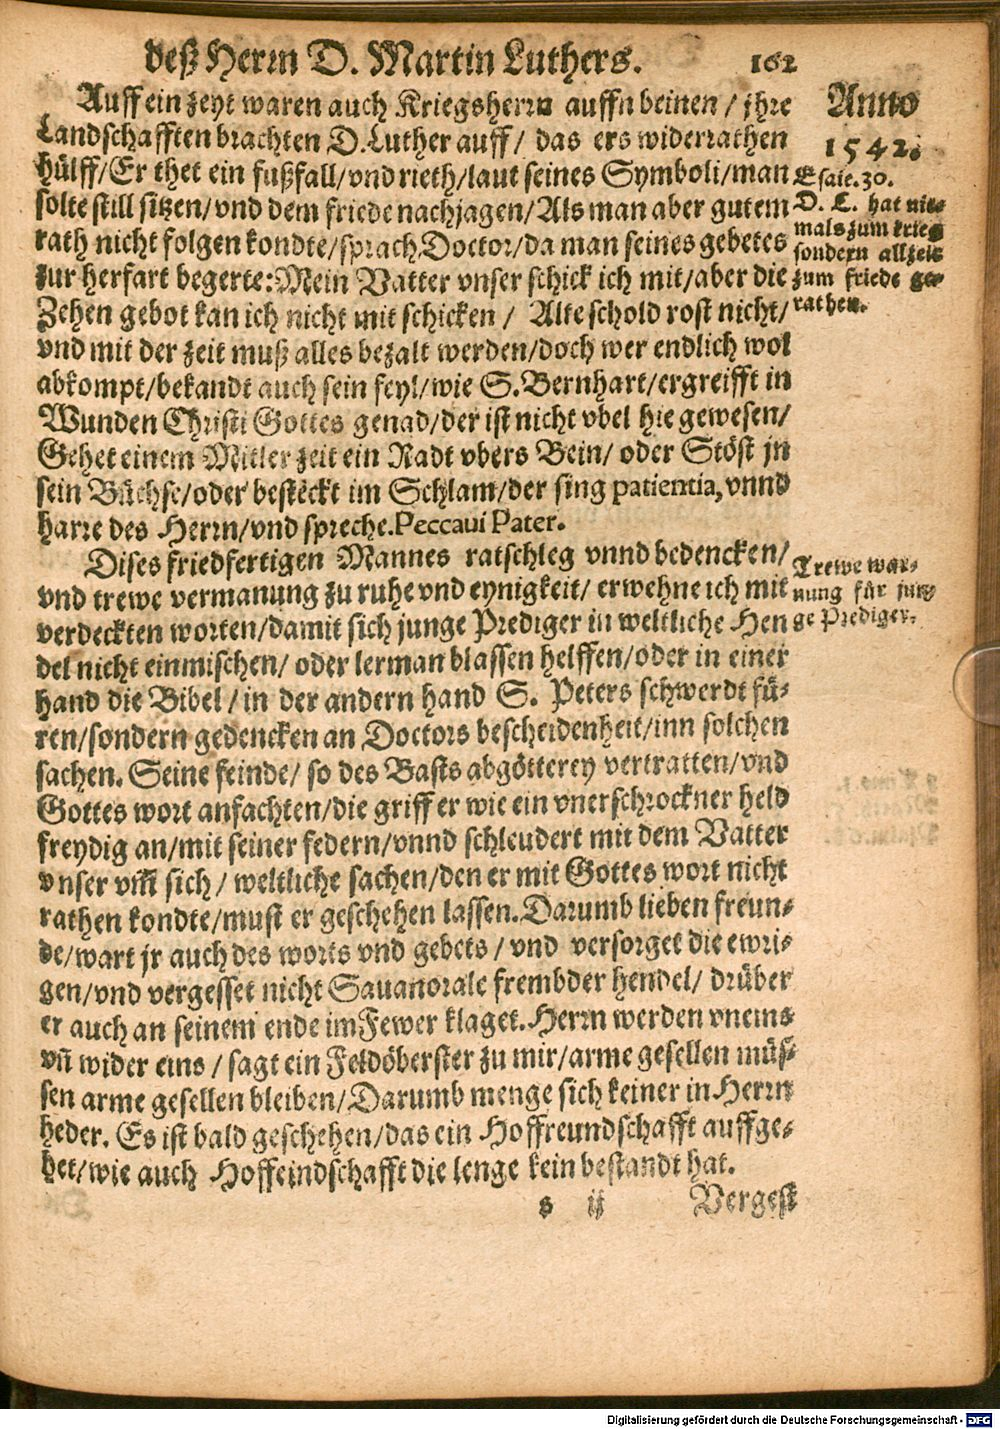 deß Herrn D. Martin Luthers. 162
Auff ein zeyt waren auch Kriegsherrn auffn beinen / jhre
Landschafften brachten D. Luther auff / das ers widerrathen
hülff / Er thet ein fußfall / vnd rieth / laut seines Symboli / man
solte still sitzen / vnd dem friede nachjagen / Als man aber gutem
rath nicht folgen kondte / sprach Doctor / da man seines gebetes
zur herfart begerte: Mein Vatter vnser schick ich mit / aber die
Zehen gebot kan ich nicht mit schicken / Alte schold rost nicht /
vnd mit der zeit muß alles bezalt werden / doch wer endlich wol
abkompt / bekandt auch sein feyl / wie S. Bernhart / ergreifft in
Wunden Christi Gottes genad / der ist nicht vbel hie gewesen /
Gehet einem Mitler zeit ein Radt vbers Bein / oder Stöst jn
sein Büchse / oder besteckt im Schlam / der sing patientia, vnnd
harre des Herrn / vnd spreche. Peccaui Pater.
Dises friedfertigen Mannes ratschleg vnnd bedencken /
vnd trewe vermanung zu ruhe vnd eynigkeit / erwehne ich mit
verdeckten worten / damit sich junge Prediger in weltliche Hen
del nicht einmischen / oder lerman blassen helffen / oder in einer
hand die Bibel / in der andern hand S. Peters schwerdt fü-
ren / sondern gedencken an Doctors bescheidenheit / inn solchen
sachen. Seine feinde / so des Basts abgötterey vertratten / vnd
Gottes wort anfachten / die griff er wie ein vnerschrockner held
freydig an / mit seiner federn / vnnd schleudert mit dem Vatter
vnser vm̄ sich / weltliche sachen / den er mit Gottes wort nicht
rathen kondte / must er geschehen lassen. Darumb lieben freun-
de / wart jr auch des worts vnd gebets / vnd versorget die ewri-
gen / vnd vergesset nicht Sauanorale frembder hendel / drüber
er auch an seinem ende im Fewer klaget. Herrn werden vneins
vn̄ wider eins / sagt ein Feldöberster zu mir / arme gesellen müs-
sen arme gesellen bleiben / Darumb menge sich keiner in Herrn
heder. Es ist bald geschehen / das ein Hoffreundschafft auffge-
het / wie auch Hoffeindschafft die lenge kein bestandt hat.
s ij Vergest
Anno
1542.
Esaie. 30.
D. L. hat nie-
mals zum krieg
sondern allzeit
zum friede ge-
rathen.
Trewe war-
nung für jun-
ge Prediger.
Digitalisierung gefördert durch die Deutsche Forschungsgemeinschaft - DFG